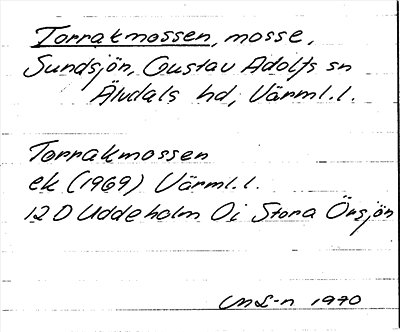 Torrakmossen, mosse,
Sundsjön, Gustav Adolfs sn
Älvdals hd, Värml.l.
Torrakmossen
ek (1969) Värml.l.
12 D Uddeholm 0i Stora Örsjön
1970